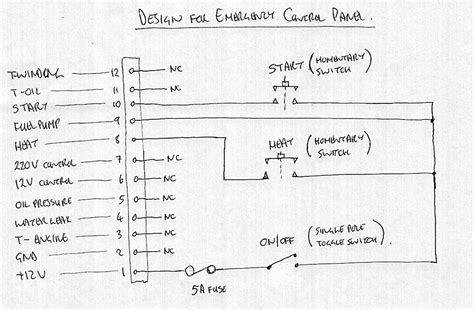 DESIGN FOR EMERGENCY CONTROL PANEL.
T-WINDING 12 NC
T-OIL 11 NC
START 10
FUEL PUMP 9
HEAT 8
220V CONTROL 7 NC
12V CONTROL 6 NC
OIL PRESSURE 5 NC
WATER LEAK 4 NC
T-ENGINE 3 NC
GND 2 NC
+12V 1
START (MOMENTARY
SWITCH)
HEAT (MOMENTARY
SWITCH)
ON/OFF (SINGLE POLE
TOGGLE SWITCH).
5A FUSE